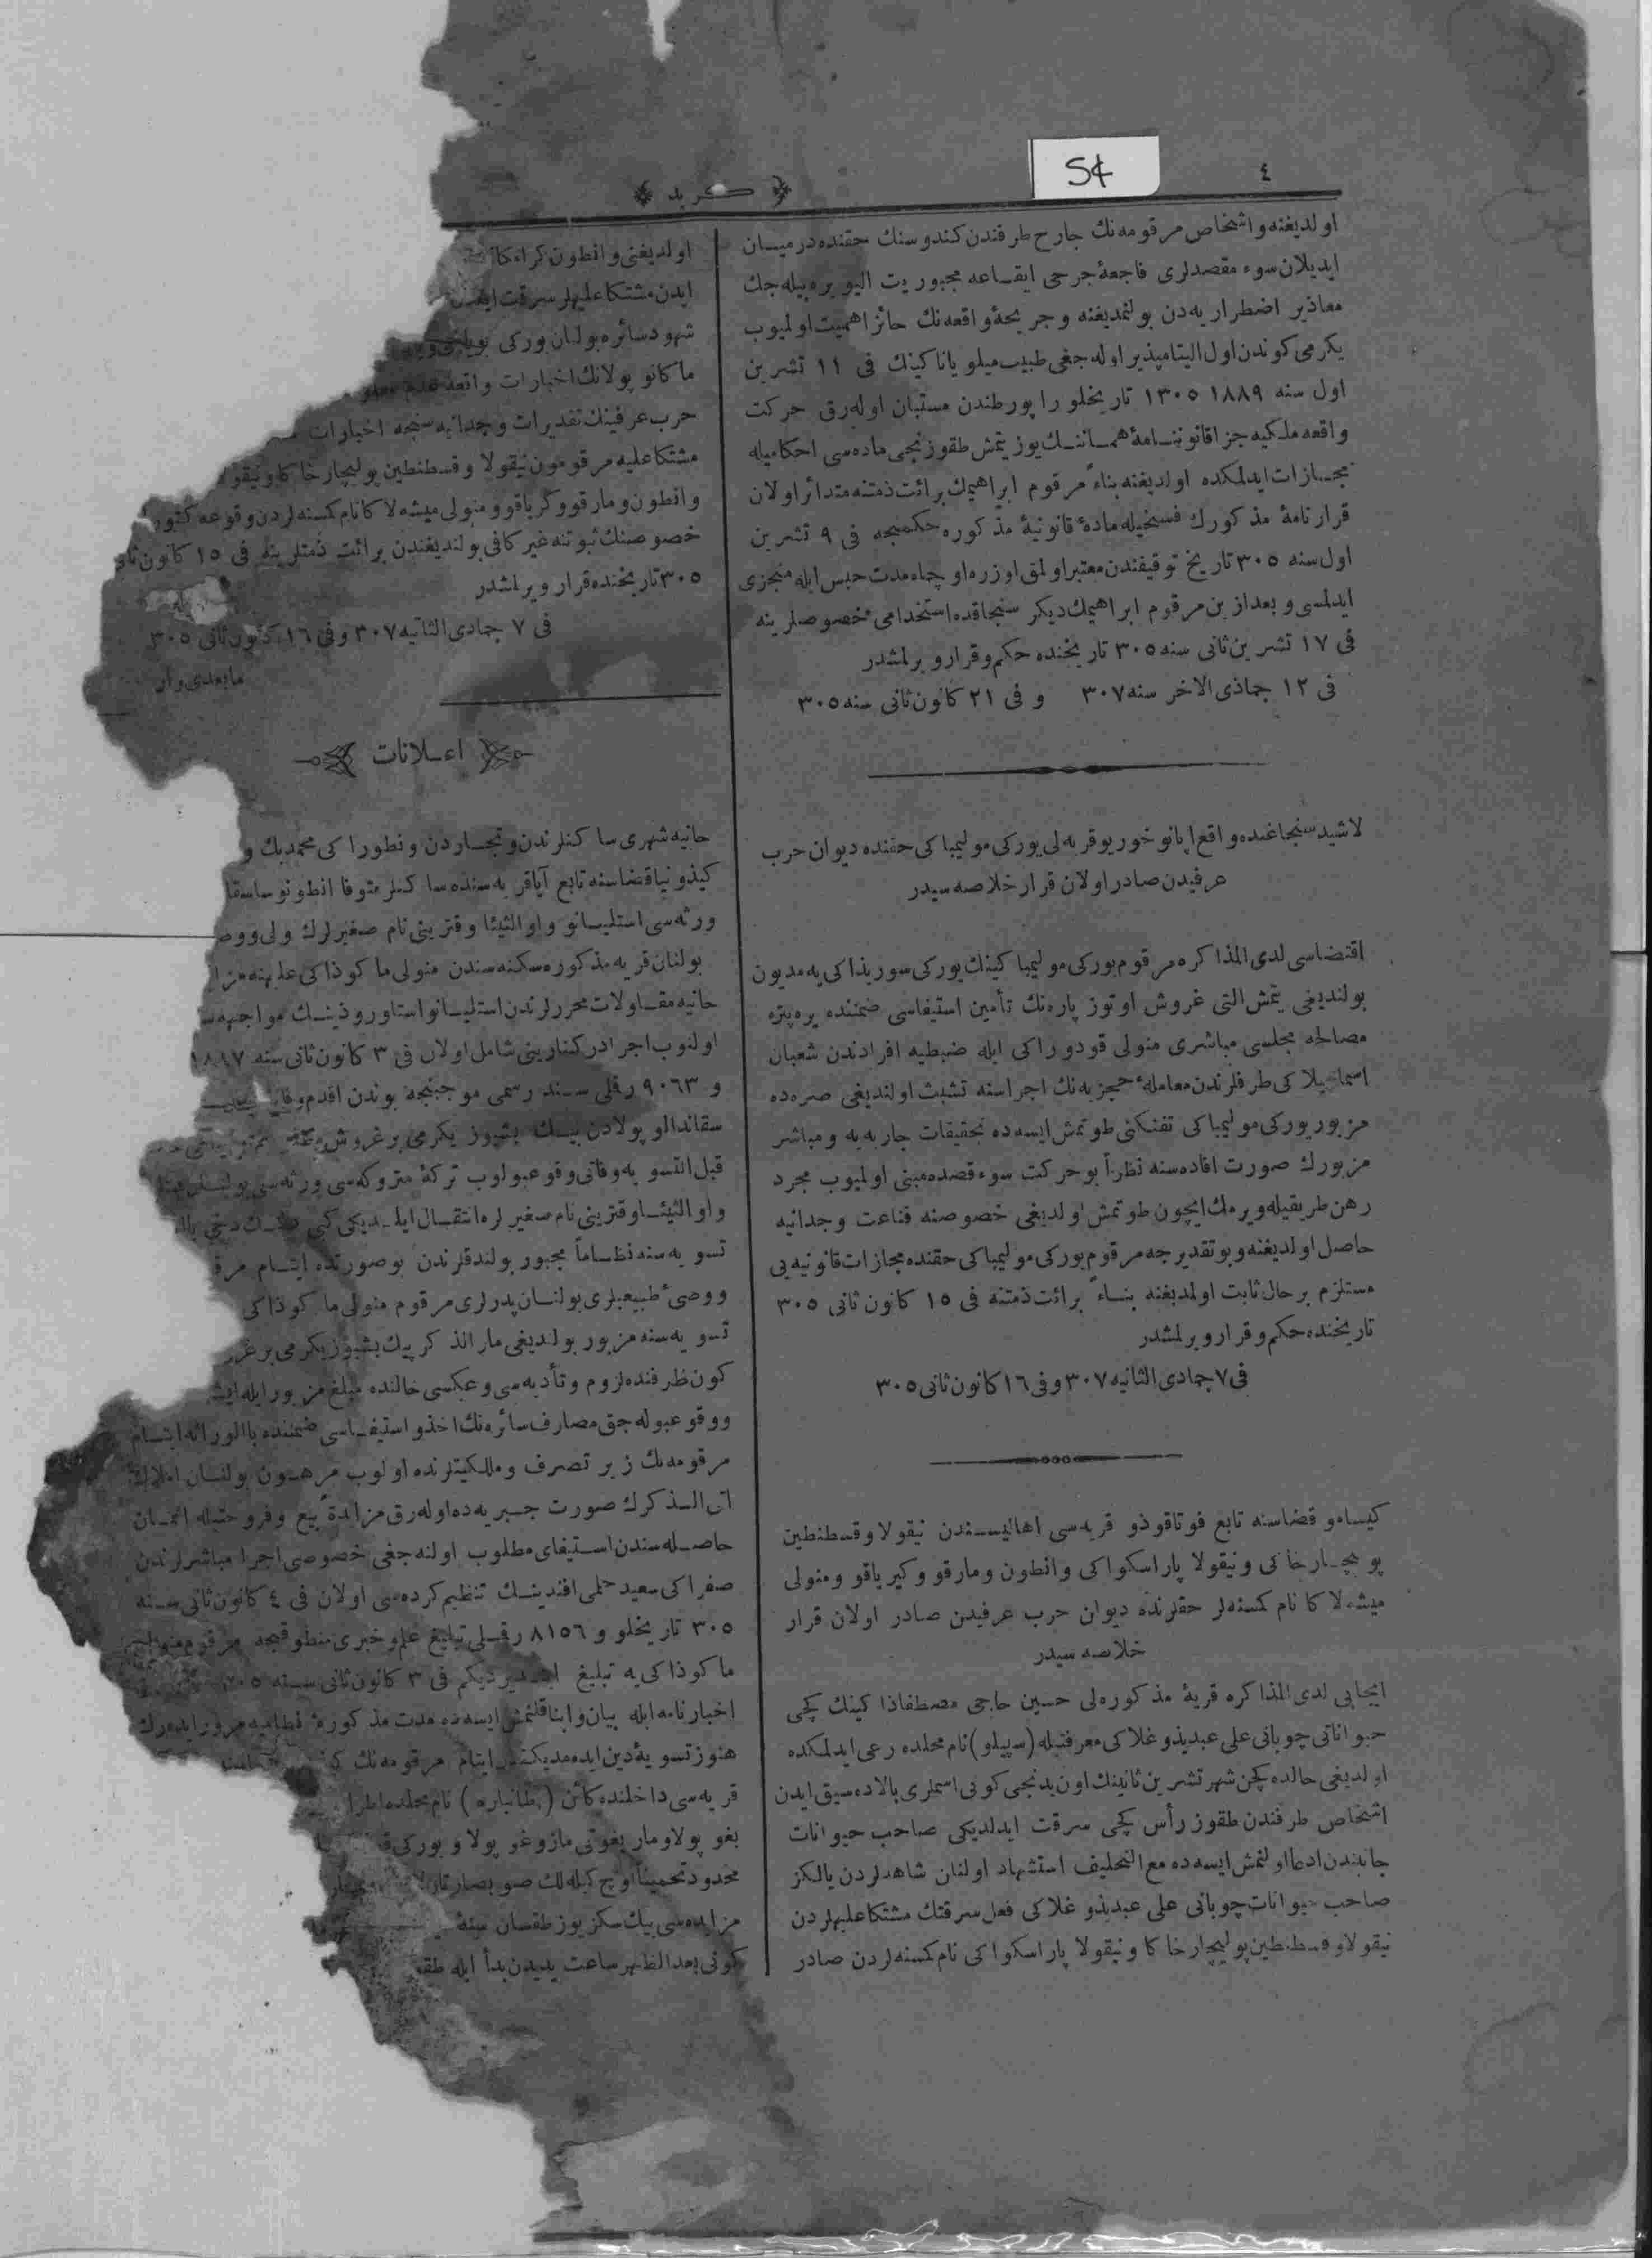 ٤
S4
﴿ كريد ﴾
اولديغنه واشخاص مرقومه‌نك جارح طرفندن كندوسنك حقنده درميان
ايديلان سوء مقصدلرى فاجعهٔ جرحى ايقاعه مجبوريت اليويره‌بيله‌جك
معاذير اضطراريه‌دن بولنمديغنه وجريحهٔ واقعه‌نك حائز اهميت اولميوب
يكرمى كوندن اول التيامپذير اوله‌جغى طبيب ميلوياناكينك فى ١١ تشرين
اول سنه ١٨٨٩ ١٣٠٥ تاريخلو راپورطندن مستبان اوله‌رق حركت
واقعه ملكيه جزا قانوننامهٔ همايوننك يوز يتمش طقوزنجى ماده‌سى احكاميله
مجازات ايدلمكده اولديغنه بناءً مرقوم ابراهيمك برائت ذمتنه متدائر اولان
قرارنامهٔ مذكورك فسخيله مادهٔ قانونيهٔ مذكوره حكمنجه فى ٩ تشرين
اول سنه ٣٠٥ تاريخ توقيفندن معتبر اولمق اوزره اوچ ماه مدت حبس ايله مجزى
ايدلمسى وبعد ازين مرقوم ابراهيمك ديكر سنجاقده استخدامى خصوصلرينه
فى ١٧ تشرين ثانى سنه ٣٠٥ تاريخنده حكم وقرار ويرلمشدر
فى ١٢ جماذى الاخر سنه ٣٠٧ و فى ٢١ كانون ثانى سنه ٣٠٥
لاشيد سنجاغنده واقع اپانو خوريو قريه‌لى يوركى موليمباكى حقنده ديوان حرب
عرفيدن صادر اولان قرار خلاصه سيدر
اقتضاسى لدى المذاكره مرقوم يوركى موليمباكينك يوركى سوريذاكى‌يه مديون
بولنديغى يتمش التى غروش اوتوز پاره‌نك تأمين استيفاسى ضمننده يره‌پتره
مصالحه مجلسى مباشرى منولى قودوراكى ايله ضبطيه افرادندن شعبان
اسماعيلاكى طرفلرندن معاملهٔ حجزيه‌نك اجراسنه تشبث اولنديغى صره‌ده
مزبور يوركى موليمباكى تفنكنى طوتمش ايسه‌ده تحقيقات جاريه‌يه ومباشر
مزبورك صورت افاده‌سنه نظراً بو حركت سوء قصده مبنى اولميوب مجرد
رهن طريقيله ويرمك ايچون طوتمش اولديغى خصوصنه قناعت وجدانيه
حاصل اولديغنه وبو تقديرجه مرقوم يوركى موليمباكى حقنده مجازات قانونيه‌يى
مستلزم بر حال ثابت اولمديغنه بناءً برائت ذمتنه فى ١٥ كانون ثانى ٣٠٥
تاريخنده حكم وقرار ويرلمشدر
فى ٧ جمادى الثانيه ٣٠٧ وفى ١٦ كانون ثانى ٣٠٥
كيسامو قضاسنه تابع فوتاقوذو قريه‌سى اهاليسندن نيقولا وقسطنطين
پوليچارخاكى ونيقولا پاراسكواكى وانطون ومارقو وكيرياقو ومنولى
ميشه‌لاكا نام كمسنه‌لر حقلرنده ديوان حرب عرفيدن صادر اولان قرار
خلاصه سيدر
ايجابى لدى المذاكره قريهٔ مذكوره‌لى حسين حاجى مصطفاذاكينك كچى
حيواناتى چوبانى على عبديذوغلاكى معرفتيله (سپيلو) نام محلده رعى ايدلمكده
اولديغى حالده كچن شهر تشرين ثانينك اون يدنجى كونى اسملرى بالاده سبق ايدن
اشخاص طرفندن طقوز رأس كچى سرقت ايدلديكى صاحب حيوانات
جانبندن ادعا اولنمش ايسه‌ده مع التحليف استشهاد اولنان شاهدلردن يالكز
صاحب حيوانات چوبانى على عبديذو غلاكى فعل سرقتك مشتكا عليهلردن
نيقولا وقسطنطين پوليچارخاكا ونيقولا پاراسكواكى نام كمسنه‌لردن صادر
اولديغنى وانطون كرامكا
ايدن مشتكا عليهلر سرقت
شهود سائره بولنان يوركى
ماكانو پولانك اخبارات واقعه
حرب عرفينك تقديرات وجدانيه‌سنجه اخبارات
مشتكا عليه مرقومون نيقولا وقسطنطين پوليچارخاكا ونيقولا
وانطون ومارقو وكرياقو ومنولى ميشه‌لاكا نام كمسنه‌لردن وقوعه
خصوصنك ثبوتنه غير كافى بولنديغندن برائت ذمتلرينه فى ١٥ كانون ثانى
٣٠٥ تاريخنده قرار ويرلمشدر
فى ٧ جمادى الثانيه ٣٠٧ وفى ١٦ كانون ثانى ٣٠٥
مابعدى وار
اعلانات
حانيه شهرى ساكنلرندن وتجاردن ونطوراكى محمد بك و
كيذونيا قضاسنه تابع آياقريه‌سنده ساكنلر متوفا انطونو
ورثه‌سى استليانو واوالنيئا وقترينى نام صغيرلرك ولى ووصـ
بولنان قريه مذكوره سكنه‌سندن منولى ماكوذاكى علينه
حانيه مقاولات محررلرندن استليانو استاوروذينك مواجهه
اولنوب اجرا دركنارينى شامل اولان فى ٣ كانون ثانى سنه ١٨٨٧
و ٩٠٦٣ رقملى سند رسمى موجبنجه بوندن اقدم
سقاندالو پولادن بيك بشيوز يكرمى بر غروش
قبل التسويه وفاتى وقوعبولوب تركهٔ متروكه‌سى ورثه‌سى بولنان
واوالنيئا وقترينى نام صغيرلره انتقال ايلديكى كبى
تسويه‌سنه نظاماً مجبور بولندقلرندن بو صورتده ايتام
ووصئ طبيعيلرى بولنان پدرلرى مرقوم منولى ماكوذاكى
تسويه‌سنه مزبور بولديغى مار الذكر بيك بشيوز يكرمى بر
كون ظرفنده لزوم وتأديه‌سى وعكسى حالنده مبلغ مزبور ايله
ووقوعبوله‌جق مصارف سائره‌نك اخذ واستيفاسى ضمننده بالوراثه ايتام
مرقومه‌نك زير تصرف وملكيتلرنده اولوب مرهون بولنان املاك
اتى الذكرك صورت جبريه‌ده اوله‌رق مزايدةً بيع وفروختيله اثمان
حاصله‌سندن استيفاى مطلوب اولنه‌جغى خصوصى اجرا مباشرلرندن
صفراكى سعيد حلمى افندينك تنظيم كرده‌سى اولان فى ٤ كانون ثانى سنه
٣٠٥ تاريخلو و ٨١٥٦ رقملى تبليغ علم وخبرى منطوقنجه مرقوم منولى
ماكوذاكى‌يه تبليغ ايتديرديكم فى ٣ كانون ثانى سنه ٣٠٥
اخبارنامه ايله بيان وانبا قلنمش ايسه‌ده مدت مذكورهٔ نظاميه مرور ايده‌رك
هنوز تسويهٔ دين ايده‌مديكندن ايتام مرقومه‌نك
قريه‌سى داخلنده كائن (طانباره) نام محلده
پغو پولا ومار يغوتى مازوغو پولا ويوركى
محدود تخميناً اوچ كيله‌لك صو بصار تارلا
مزايده‌سى بيك سكز يوز طقسان سنه
كونى بعد الظهر ساعت يديدن بدأ ايله طقو